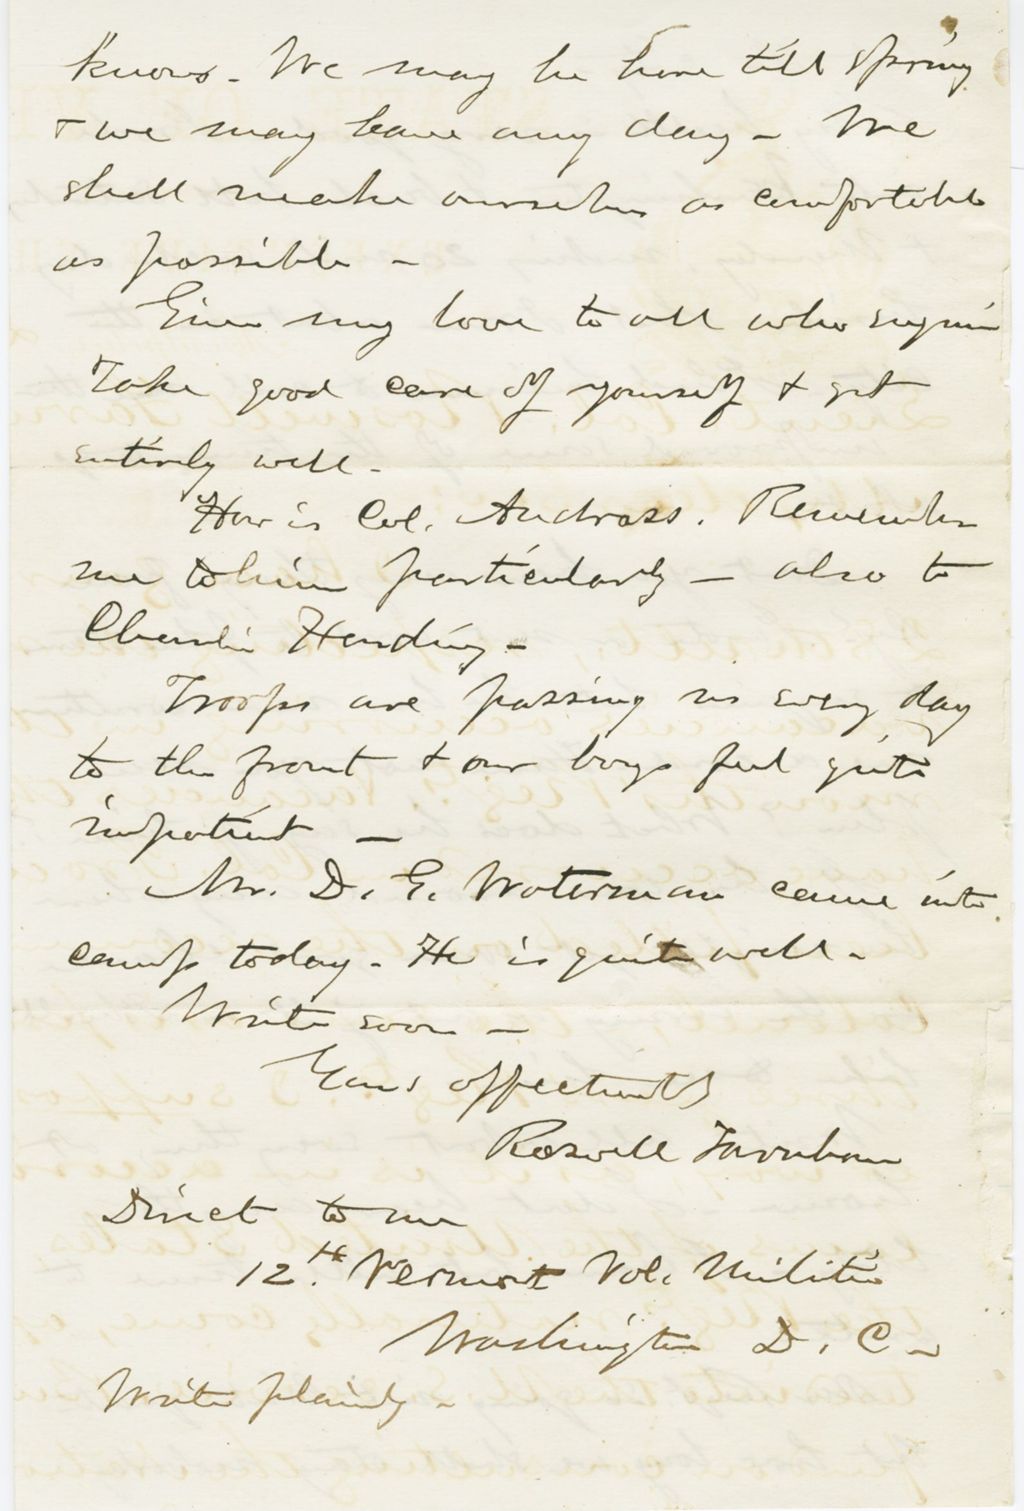 knows - We may be here till spring
+ we may leave any day - We
shall make ourselves as comfortable
as possible -
Give my love to all who enquire
Take good care of yourself + get
entirely well -
How is Col. Andross. Remember
me to him particularly - also to
Charlie Harding -
Troops are passing us every day
to the front + our boys feel quite
impatient -
Mr. D. E. Waterman came into
camp today - He is quite well -
Write soon -
Yours affectionately
Roswell Farnham
Direct to me
12.th Vermont Vol. Militia
Washington D. C -
Write plainly -